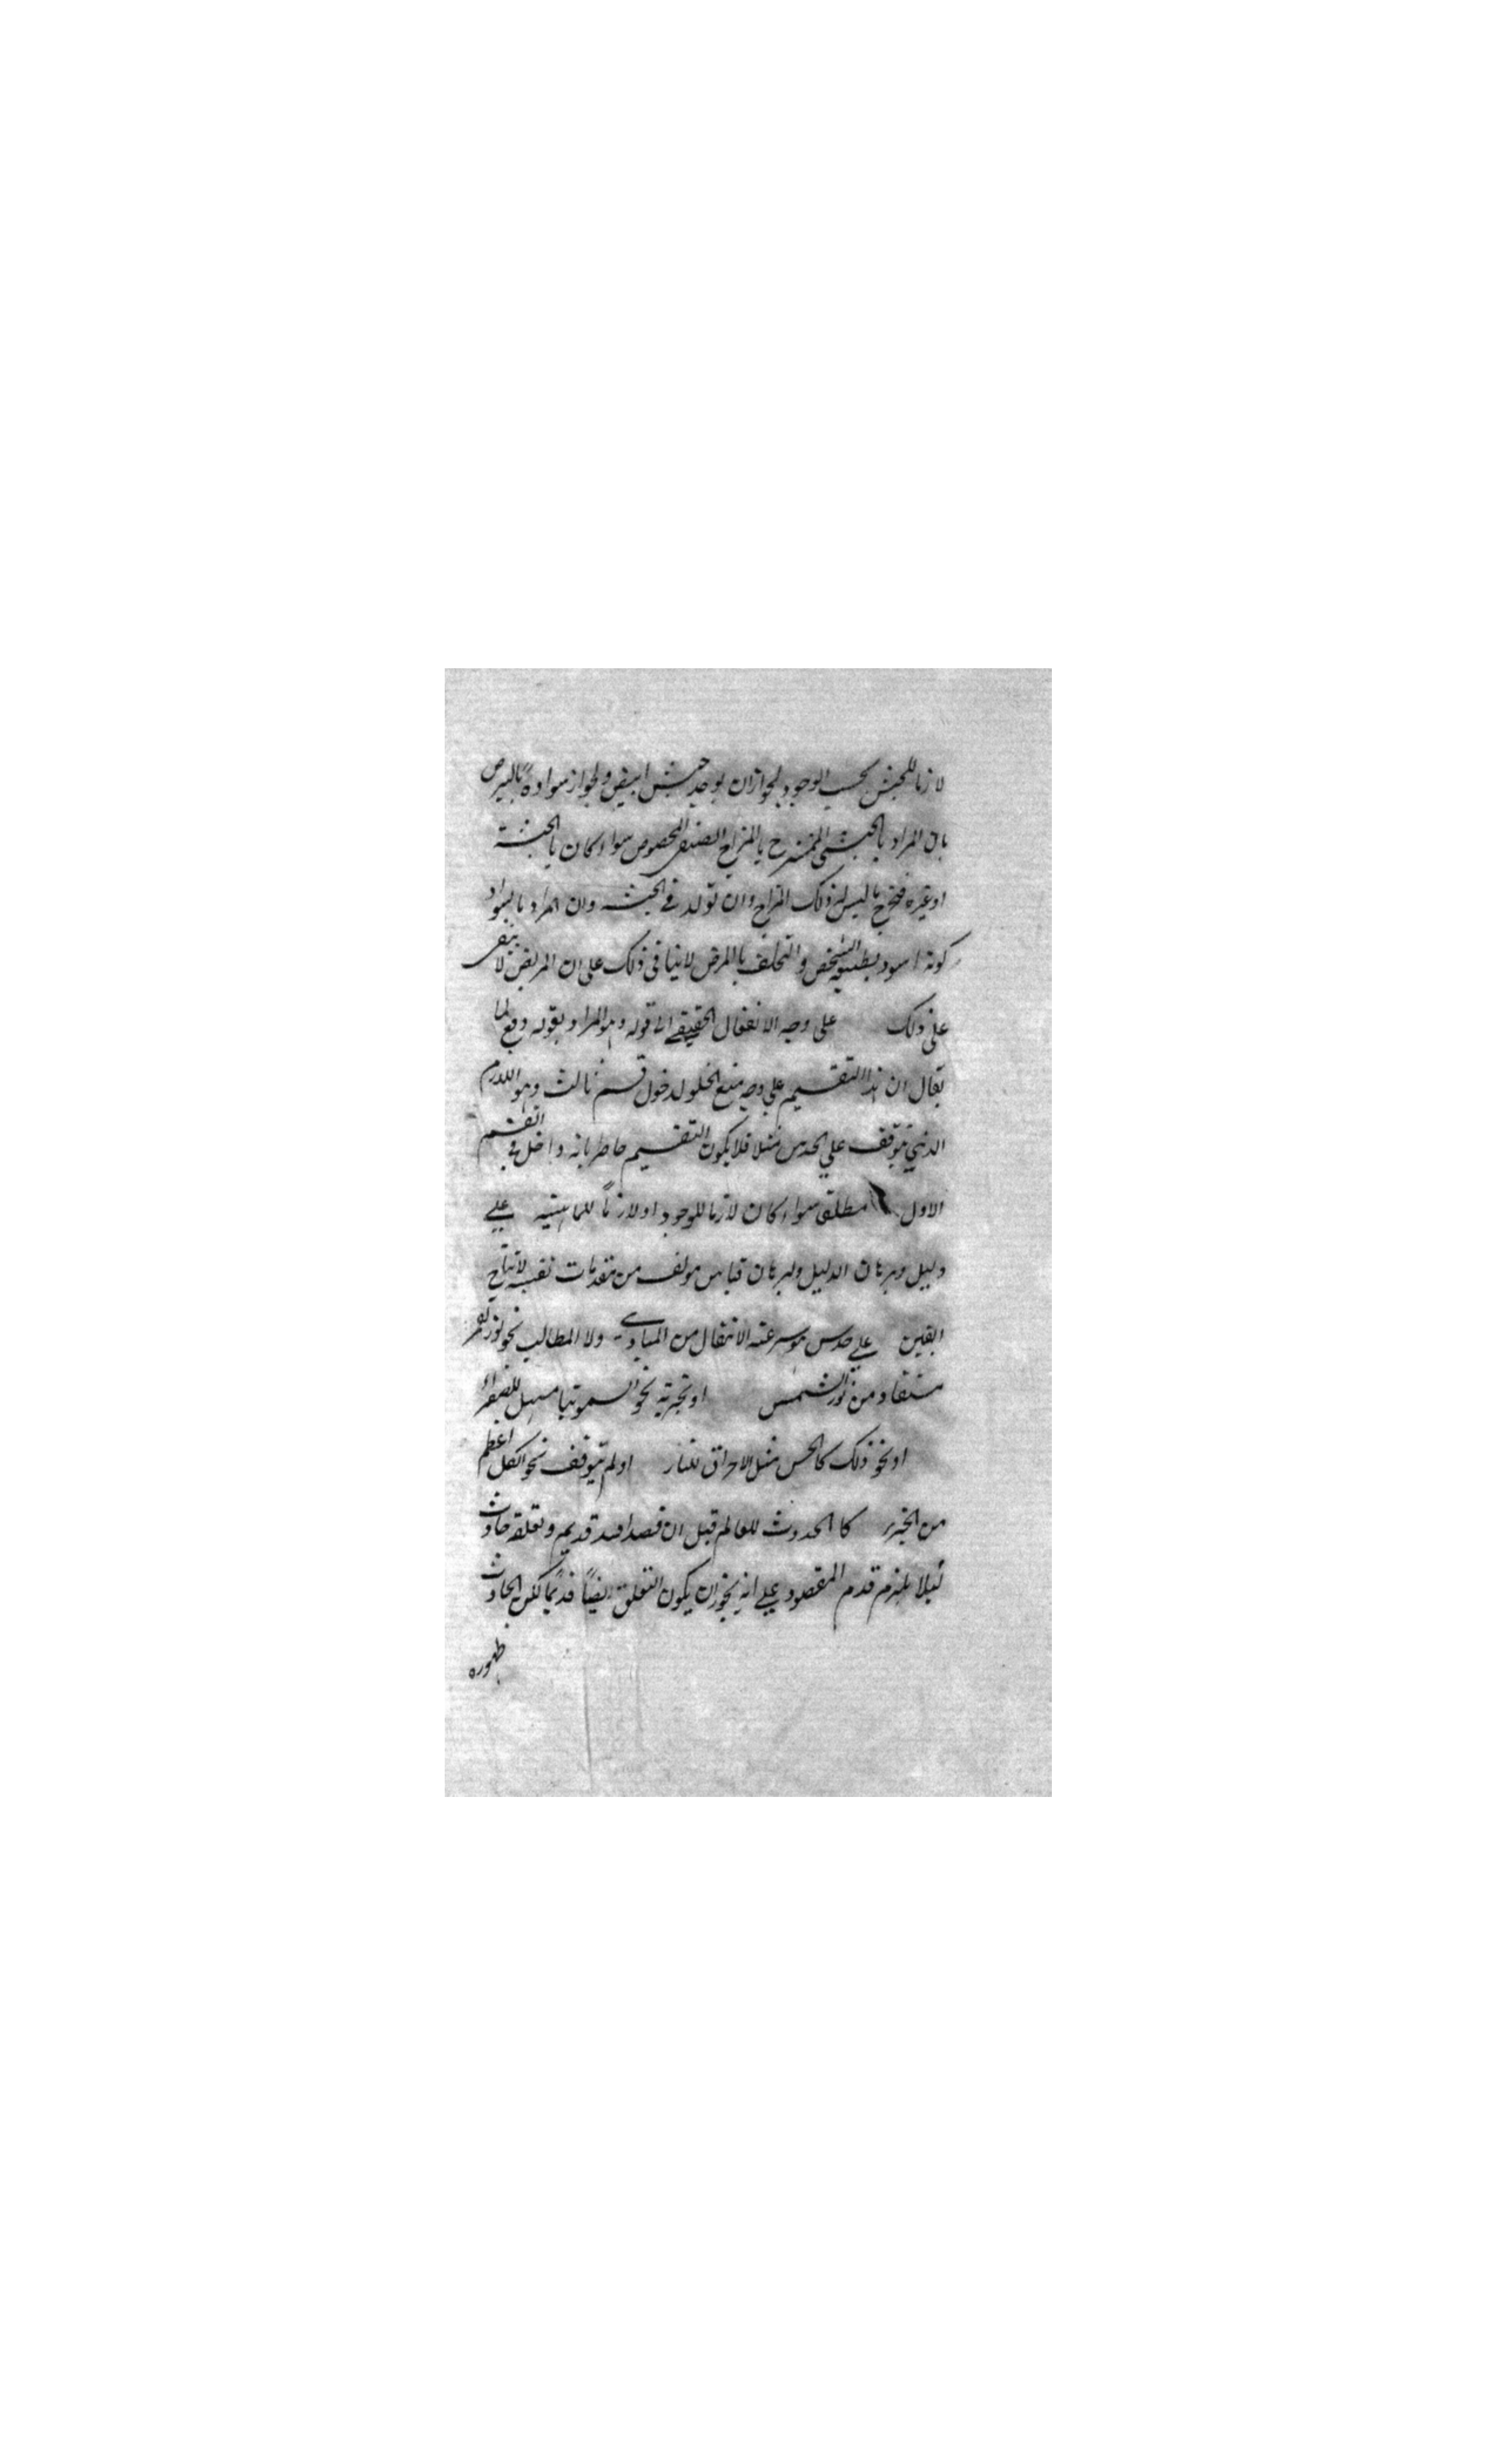 لازما للحبش بحسب الوجود لجواز ان يوجد حبش ابيض ولجواز سواده بالبرص
بان المراد بالحبشي الممتزج بالمزاج الصنفي المخصوص سواء كان بالحبشة
او غيره فخرج ما ليس له ذلك المزاج وان تولد في الحبشه وان المراد بالسواد
كونه اسود بطبيعة الشخص والتخلف بالمرض لا ينافي ذلك على ان المريض لا يبقى
على ذلك على وجه الانفصال الحقيقي الى قوله وهو المراد بقوله دفع لما
يقال ان هذا التقسيم على وجه منع الخلو لدخول قسم ثالث وهو اللازم
الذي يتوقف على الحدس مثلا فلا يكون التقسيم حاصرا بانه داخل في القسم
الاول مطلقا سواء كان لازما للوجود او لازماً للماهية على
دليل وبرهان الدليل والبرهان قياس مولف من مقدمات يقينيه لانتاج
اليقين على حدس هو سرعته الانتقال من المبادي ولا المطالب نحو نور القمر
مستفاد من نور الشمس او تجربة نحو السقمونيا مسهل للصفراء
او نحو ذلك كالحس مثل الاحراق للنار او لم يتوقف نحو الكل اعظم
من الجزء كالحدوث للعالم قبل ان قصد الله قديم وتعلقه حادث
ليلا يلزم قدم المقصود على انه يجوز ان يكون التعلق ايضاً قديما لكن الحادث
ظهوره